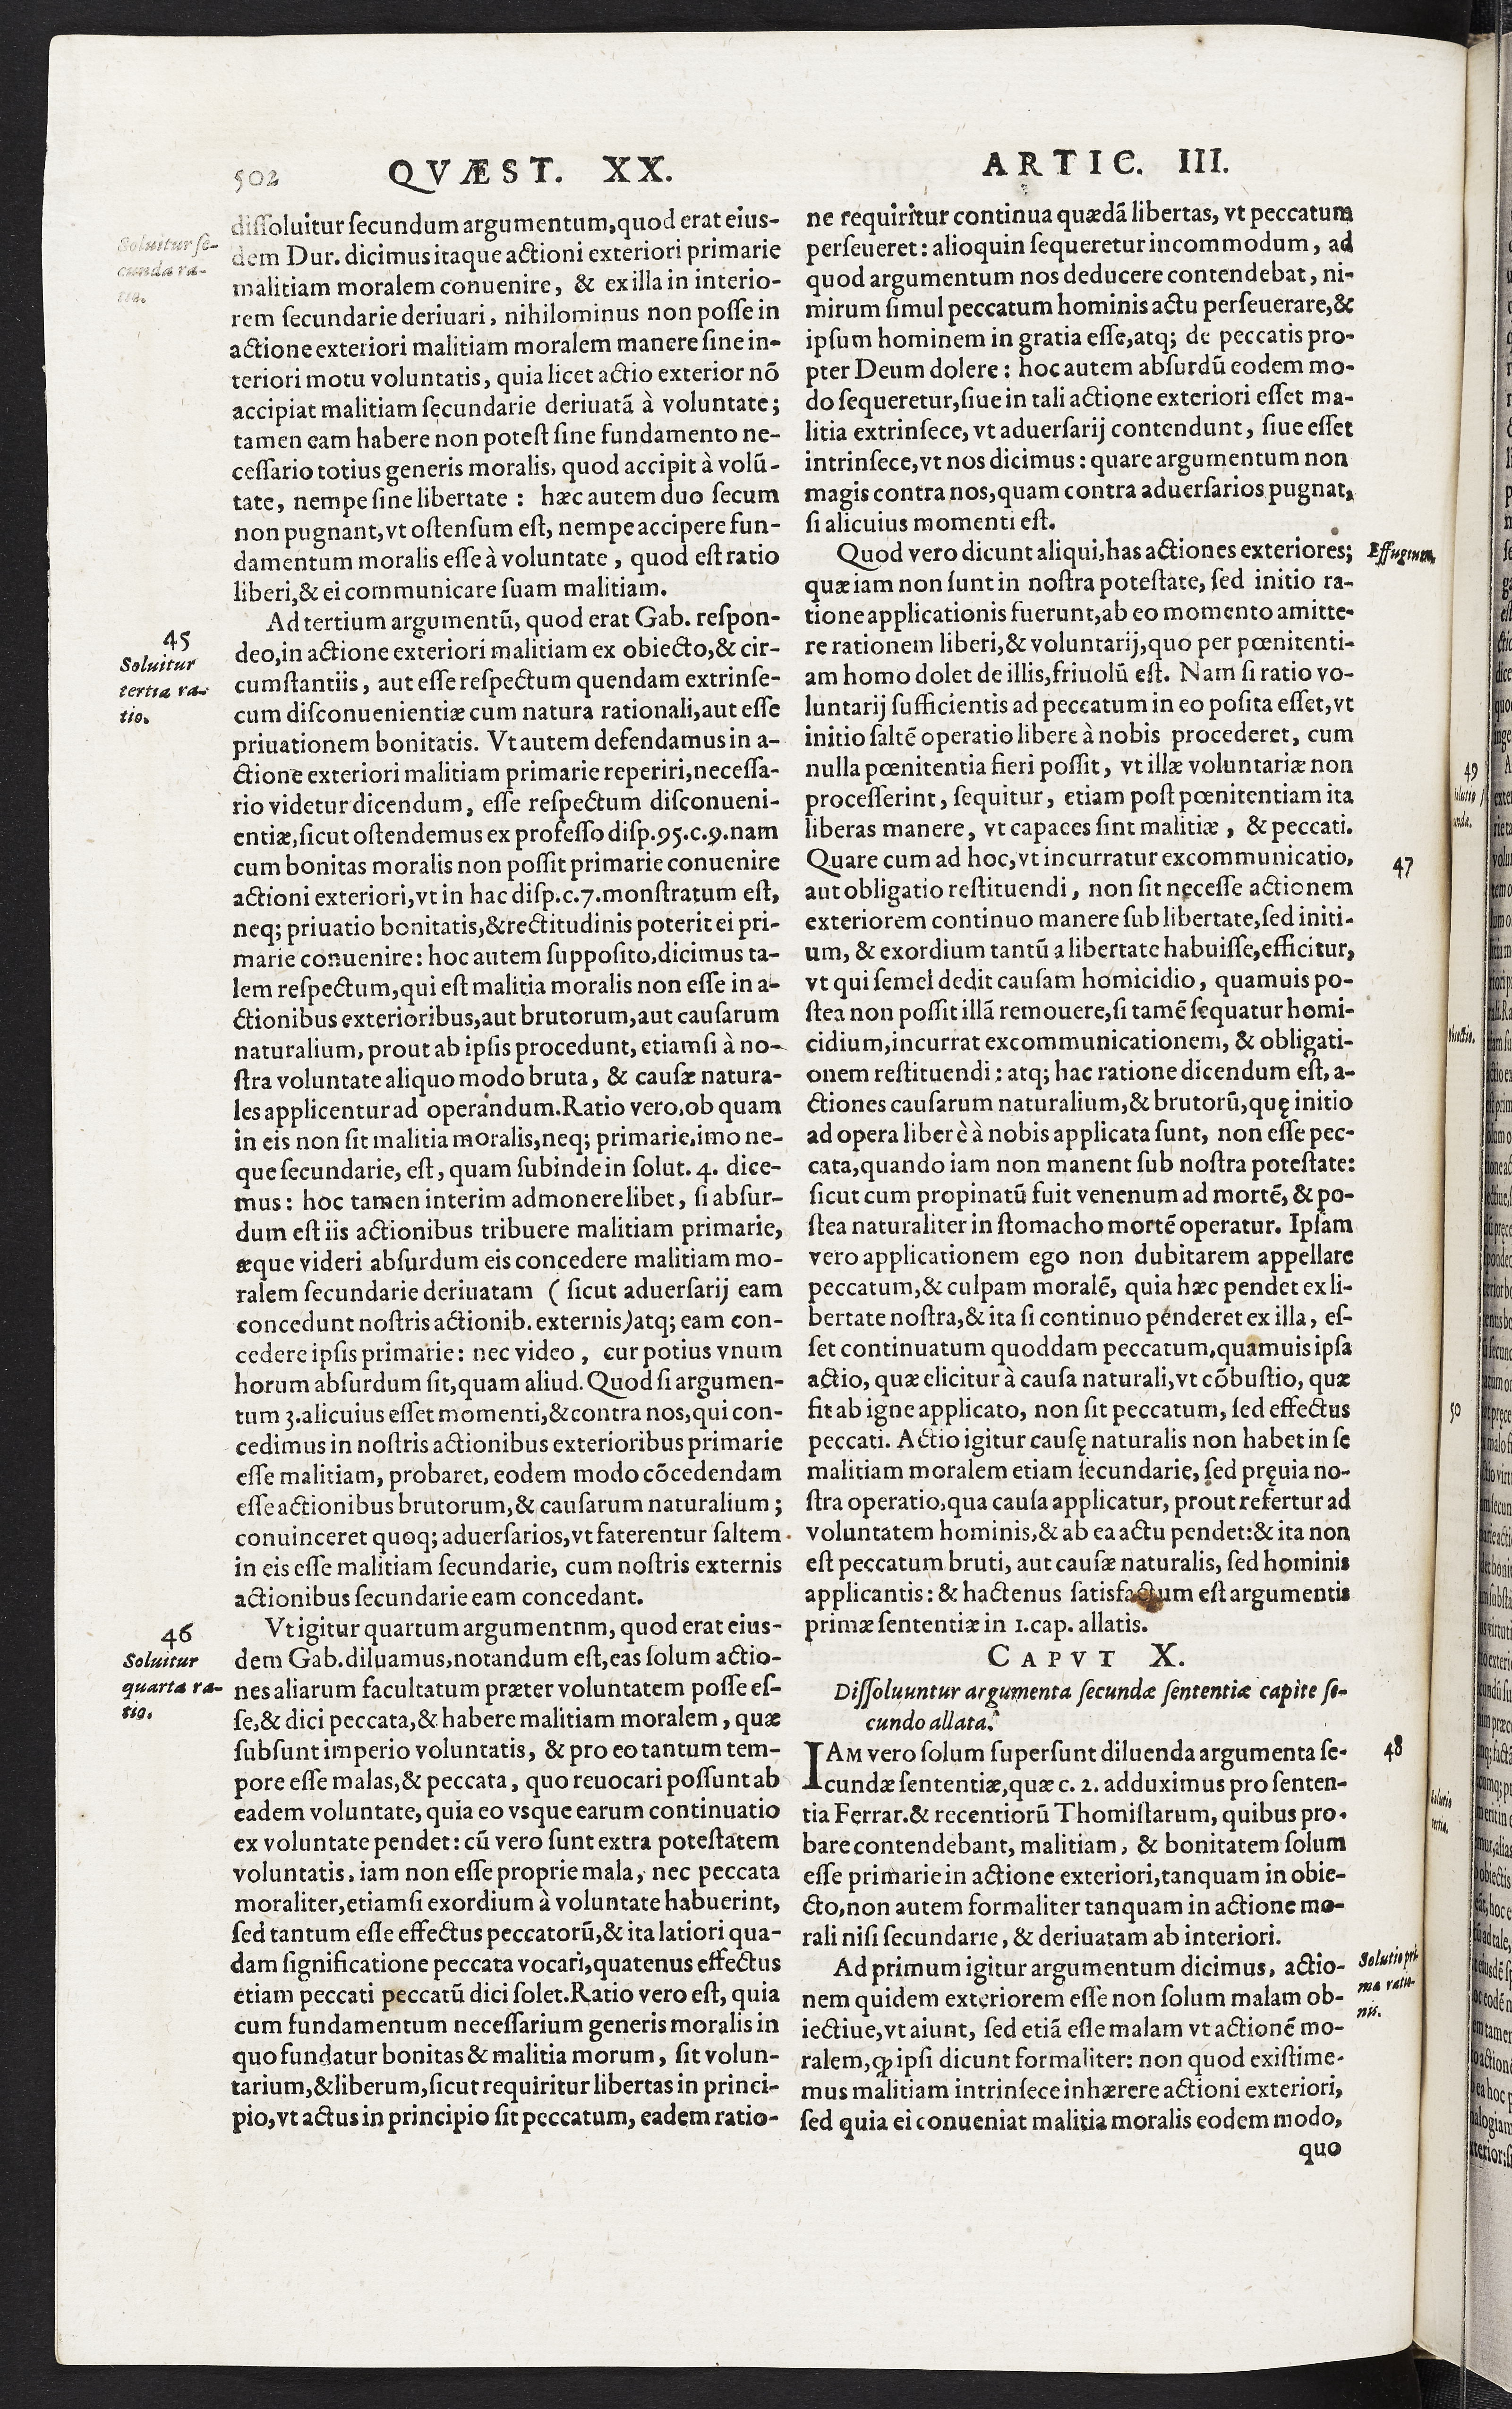 502 QVÆST. XX. ARTIC. III.
Soluitur ſe-
cunda ra-
tio.
diſſoluitur ſecundum argumentum, quod erat eiuſ-
dem Dur. dicimus itaque actioni exteriori primarie
malitiam moralem conuenire, & ex illa in interio-
rem ſecundarie deriuari, nihilominus non poſſe in
actione exteriori malitiam moralem manere ſine in-
teriori motu voluntatis, quia licet actio exterior nõ
accipiat malitiam ſecundarie deriuatã à voluntate;
tamen eam habere non poteſt ſine fundamento ne-
ceſſario totius generis moralis, quod accipit à volũ-
tate, nempe ſine libertate : hæc autem duo ſecum
non pugnant, vt oſtenſum eſt, nempe accipere fun-
damentum moralis eſſe à voluntate, quod eſt ratio
liberi, & ei communicare ſuam malitiam.
45
Soluitur
tertia ra-
tio.
Ad tertium argumentũ, quod erat Gab. reſpon-
deo, in actione exteriori malitiam ex obiecto, & cir-
cumſtantiis, aut eſſe reſpectum quendam extrinſe-
cum diſconuenientiæ cum natura rationali, aut eſſe
priuationem bonitatis. Vt autem defendamus in a-
ctione exteriori malitiam primarie reperiri, neceſſa-
rio videtur dicendum, eſſe reſpectum diſconueni-
entiæ, ſicut oſtendemus ex profeſſo diſp.95.c.9. nam
cum bonitas moralis non poſſit primarie conuenire
actioni exteriori, vt in hac diſp.c.7. monſtratum eſt,
neq; priuatio bonitatis, & rectitudinis poterit ei pri-
marie conuenire: hoc autem ſuppoſito, dicimus ta-
lem reſpectum, qui eſt malitia moralis non eſſe in a-
ctionibus exterioribus, aut brutorum, aut cauſarum
naturalium, prout ab ipſis procedunt, etiamſi à no-
ſtra voluntate aliquo modo bruta, & cauſæ natura-
les applicentur ad operandum. Ratio vero, ob quam
in eis non ſit malitia moralis, neq; primarie, imo ne-
que ſecundarie, eſt, quam ſubinde in ſolut. 4. dice-
mus: hoc tamen interim admonere libet, ſi abſur-
dum eſt iis actionibus tribuere malitiam primarie,
æque videri abſurdum eis concedere malitiam mo-
ralem ſecundarie deriuatam (ſicut aduerſarij eam
concedunt noſtris actionib. externis) atq; eam con-
cedere ipſis primarie: nec video, cur potius vnum
horum abſurdum ſit, quam aliud. Quod ſi argumen-
tum 3. alicuius eſſet momenti, & contra nos, qui con-
cedimus in noſtris actionibus exterioribus primarie
eſſe malitiam, probaret, eodem modo cõcedendam
eſſe actionibus brutorum, & cauſarum naturalium ;
conuinceret quoq; aduerſarios, vt faterentur ſaltem
in eis eſſe malitiam ſecundarie, cum noſtris externis
actionibus ſecundarie eam concedant.
46
Soluitur
quarta ra-
tio.
Vt igitur quartum argumentnm, quod erat eiuſ-
dem Gab. diluamus, notandum eſt, eas ſolum actio-
nes aliarum facultatum præter voluntatem poſſe eſ-
ſe, & dici peccata, & habere malitiam moralem, quæ
ſubſunt imperio voluntatis, & pro eo tantum tem-
pore eſſe malas, & peccata, quo reuocari poſſunt ab
eadem voluntate, quia eo vsque earum continuatio
ex voluntate pendet: cũ vero ſunt extra poteſtatem
voluntatis, iam non eſſe proprie mala, nec peccata
moraliter, etiamſi exordium à voluntate habuerint,
ſed tantum eſſe effectus peccatorũ, & ita latiori qua-
dam ſignificatione peccata vocari, quatenus effectus
etiam peccati peccatũ dici ſolet. Ratio vero eſt, quia
cum fundamentum neceſſarium generis moralis in
quo fundatur bonitas & malitia morum, ſit volun-
tarium, & liberum, ſicut requiritur libertas in princi-
pio, vt actus in principio ſit peccatum, eadem ratio-
ne requiritur continua quædã libertas, vt peccatum
perſeueret: alioquin ſequeretur incommodum, ad
quod argumentum nos deducere contendebat, ni-
mirum ſimul peccatum hominis actu perſeuerare, &
ipſum hominem in gratia eſſe, atq; de peccatis pro-
pter Deum dolere : hoc autem abſurdũ eodem mo-
do ſequeretur, ſiue in tali actione exteriori eſſet ma-
litia extrinſece, vt aduerſarij contendunt, ſiue eſſet
intrinſece, vt nos dicimus : quare argumentum non
magis contra nos, quam contra aduerſarios pugnat,
ſi alicuius momenti eſt.
Effugium.
Quod vero dicunt aliqui, has actiones exteriores;
quæ iam non ſunt in noſtra poteſtate, ſed initio ra-
tione applicationis fuerunt, ab eo momento amitte-
re rationem liberi, & voluntarij, quo per pœnitenti-
am homo dolet de illis, friuolũ eſt. Nam ſi ratio vo-
luntarij ſufficientis ad peccatum in eo poſita eſſet, vt
initio ſaltẽ operatio libere à nobis procederet, cum
nulla pœnitentia fieri poſſit, vt illæ voluntariæ non
proceſſerint, ſequitur, etiam poſt pœnitentiam ita
liberas manere, vt capaces ſint malitiæ, & peccati.
47
Quare cum ad hoc, vt incurratur excommunicatio,
aut obligatio reſtituendi, non ſit neceſſe actionem
exteriorem continuo manere ſub libertate, ſed initi-
um, & exordium tantũ a libertate habuiſſe, efficitur,
vt qui ſemel dedit cauſam homicidio, quamuis po-
ſtea non poſſit illã remouere, ſi tamẽ ſequatur homi-
cidium, incurrat excommunicationem, & obligati-
onem reſtituendi : atq; hac ratione dicendum eſt, a-
ctiones cauſarum naturalium, & brutorũ, quę initio
ad opera liberè à nobis applicata ſunt, non eſſe pec-
cata, quando iam non manent ſub noſtra poteſtate:
ſicut cum propinatũ fuit venenum ad mortẽ, & po-
ſtea naturaliter in ſtomacho mortẽ operatur. Ipſam
vero applicationem ego non dubitarem appellare
peccatum, & culpam moralẽ, quia hæc pendet ex li-
bertate noſtra, & ita ſi continuo penderet ex illa, eſ-
ſet continuatum quoddam peccatum, quamuis ipſa
actio, quæ elicitur à cauſa naturali, vt cõbuſtio, quæ
fit ab igne applicato, non ſit peccatum, ſed effectus
peccati. Actio igitur cauſę naturalis non habet in ſe
malitiam moralem etiam ſecundarie, ſed pręuia no-
ſtra operatio, qua cauſa applicatur, prout refertur ad
voluntatem hominis, & ab ea actu pendet: & ita non
eſt peccatum bruti, aut cauſæ naturalis, ſed hominis
applicantis: & hactenus ſatisfactum eſt argumentis
primæ ſententiæ in 1. cap. allatis.
CAPVT X.
Diſſoluuntur argumenta ſecundæ ſententiæ capite ſe-
cundo allata.
48
IAM vero ſolum ſuperſunt diluenda argumenta ſe-
cundæ ſententiæ, quæ c. 2. adduximus pro ſenten-
tia Ferrar. & recentiorũ Thomiſtarum, quibus pro-
bare contendebant, malitiam, & bonitatem ſolum
eſſe primarie in actione exteriori, tanquam in obie-
cto, non autem formaliter tanquam in actione mo-
rali niſi ſecundarie, & deriuatam ab interiori.
Solutio pri-
ma ratio-
nis.
Ad primum igitur argumentum dicimus, actio-
nem quidem exteriorem eſſe non ſolum malam ob-
iectiue, vt aiunt, ſed etiã eſſe malam vt actionẽ mo-
ralem, ꝙ ipſi dicunt formaliter: non quod exiſtime-
mus malitiam intrinſece inhærere actioni exteriori,
ſed quia ei conueniat malitia moralis eodem modo,
quo
49
50